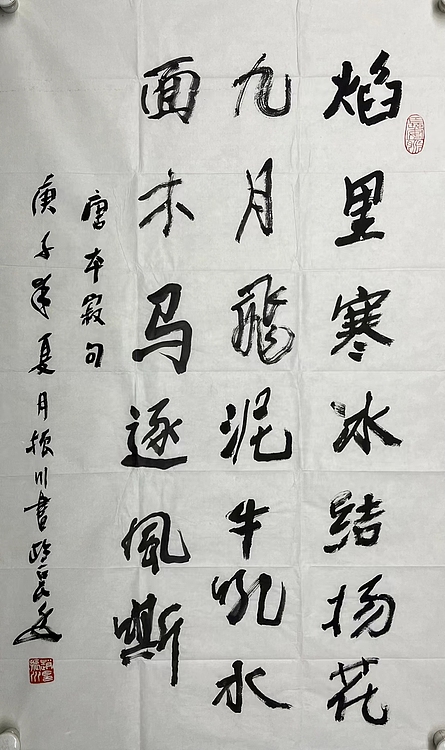 焰里寒冰结杨花
九月飛泥牛吼水
面木马逐風嘶
唐本寂句
庚子年夏月振川書